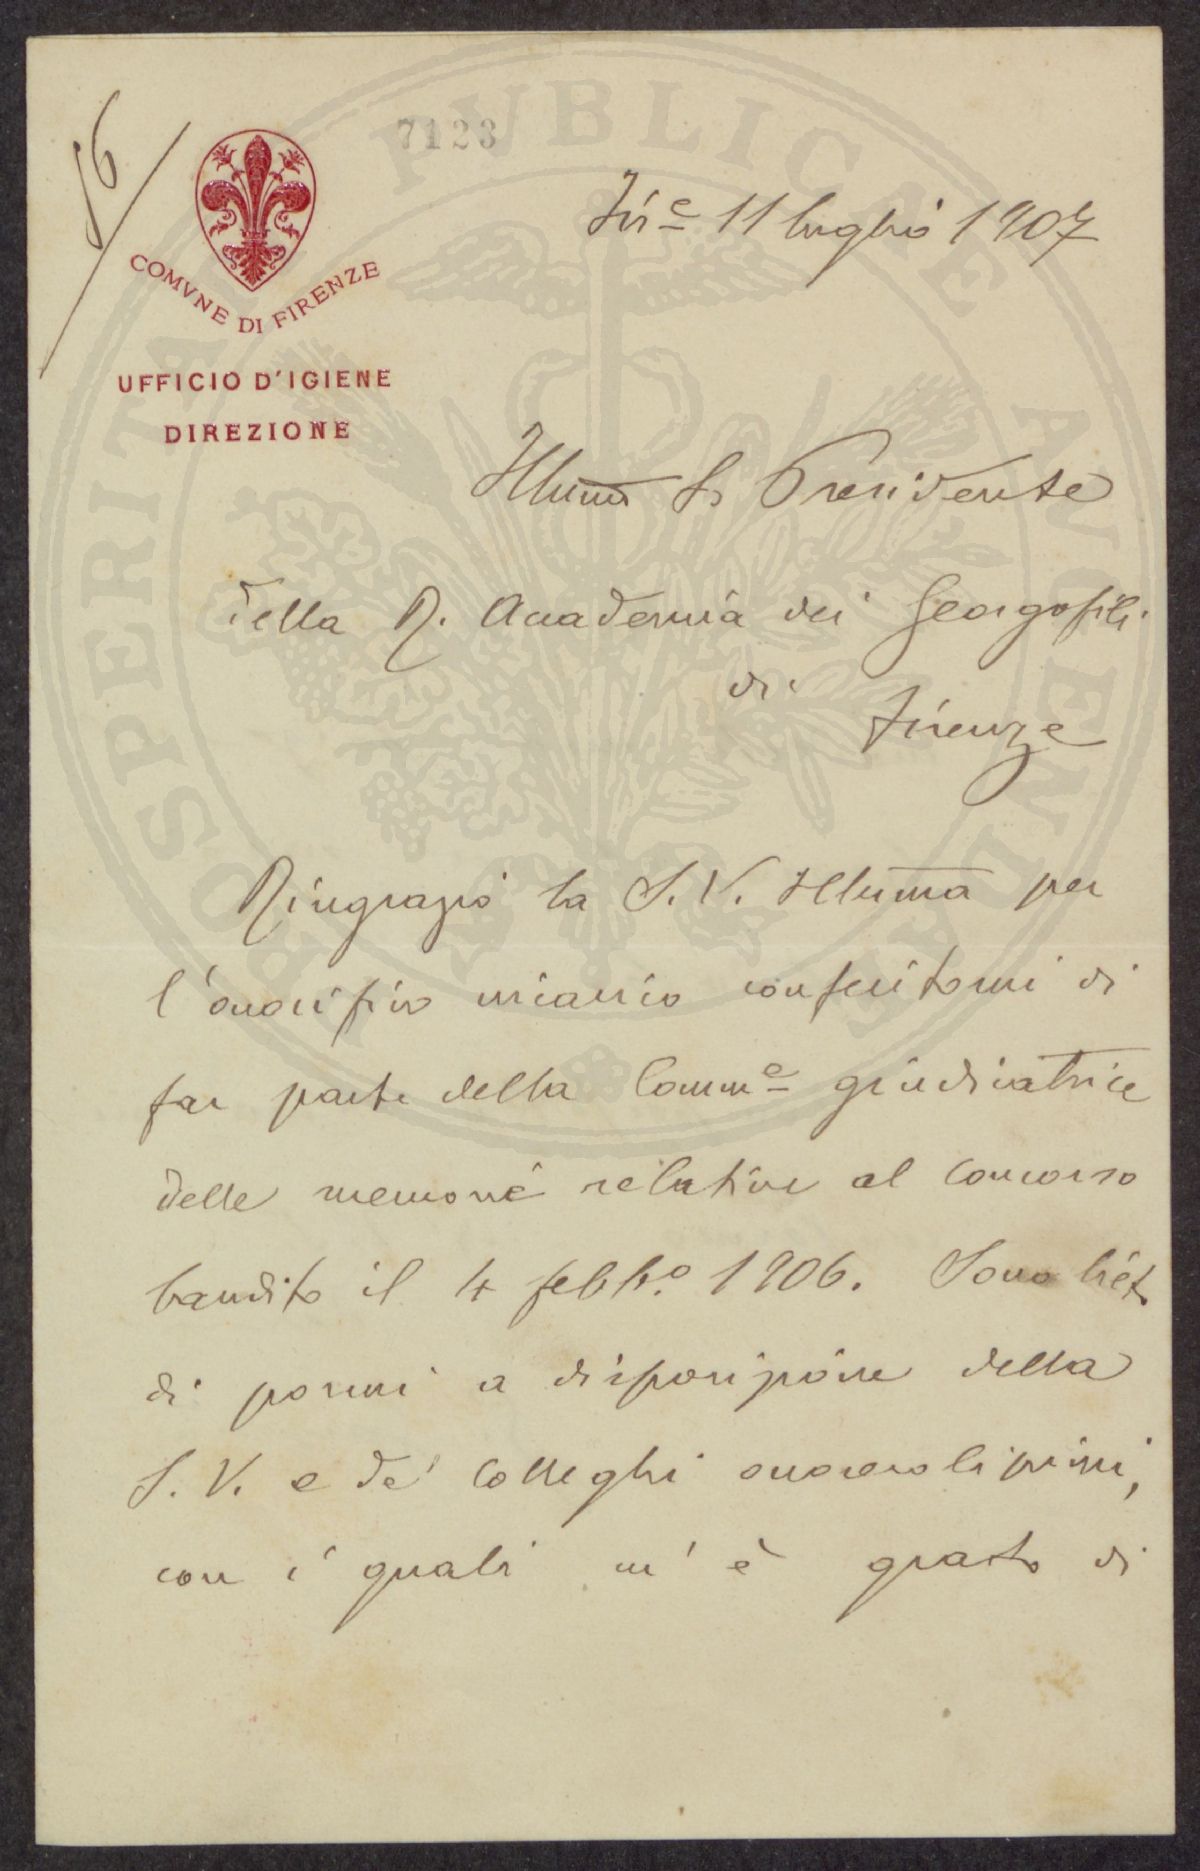 56
7123
COMVNE DI FIRENZE
UFFICIO D'IGIENE
DIREZIONE
Fire 11 luglio 1907
Illumo Sr Presidente
della R. Accademia dei Georgofili
di
Firenze
Ringrazio la S. V. Illuma per
l'onorifico incarico conferitomi di
far parte della Comme giudicatrice
delle memorie relative al concorso
bandito il 4 febbro. 1906. Sono lieto
di pormi a disposizione della
S. V. e de' colleghi onorevolissimi,
con i quali m'è grato di
PROSPERITATI PUBLICAE AUGENDAE